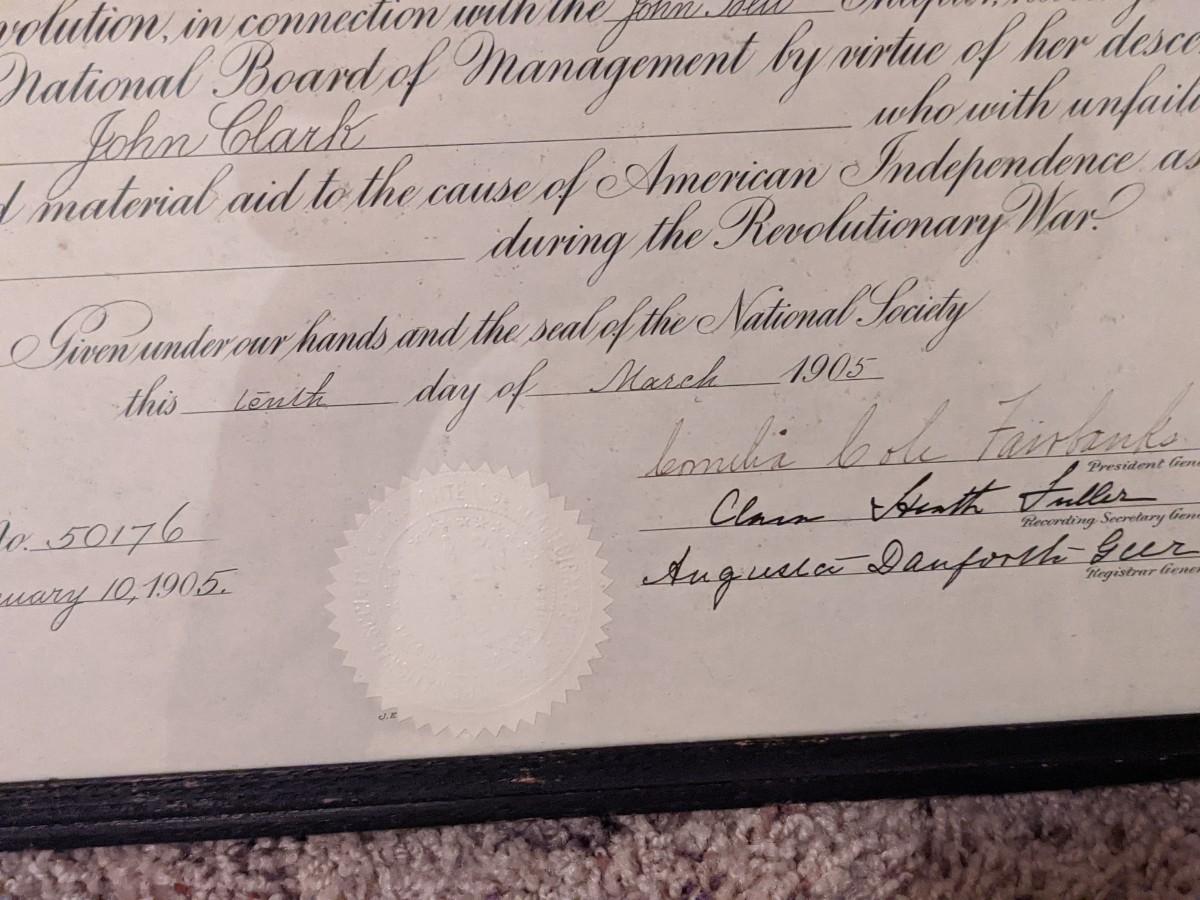 volution, in connection with the John Bell Chapter,
National Board of Management by virtue of her desce
John Clark who with unfaili
d material aid to the cause of American Independence as
during the Revolutionary War.
Given under our hands and the seal of the National Society
this tenth day of March 1905
Cornelia Cole Fairbanks
President Gene
No. 50176
Clara Heath Fuller
Recording Secretary Gene
uary 10, 1905.
Augusta Danforth Geer
Registrar Gener
J.E